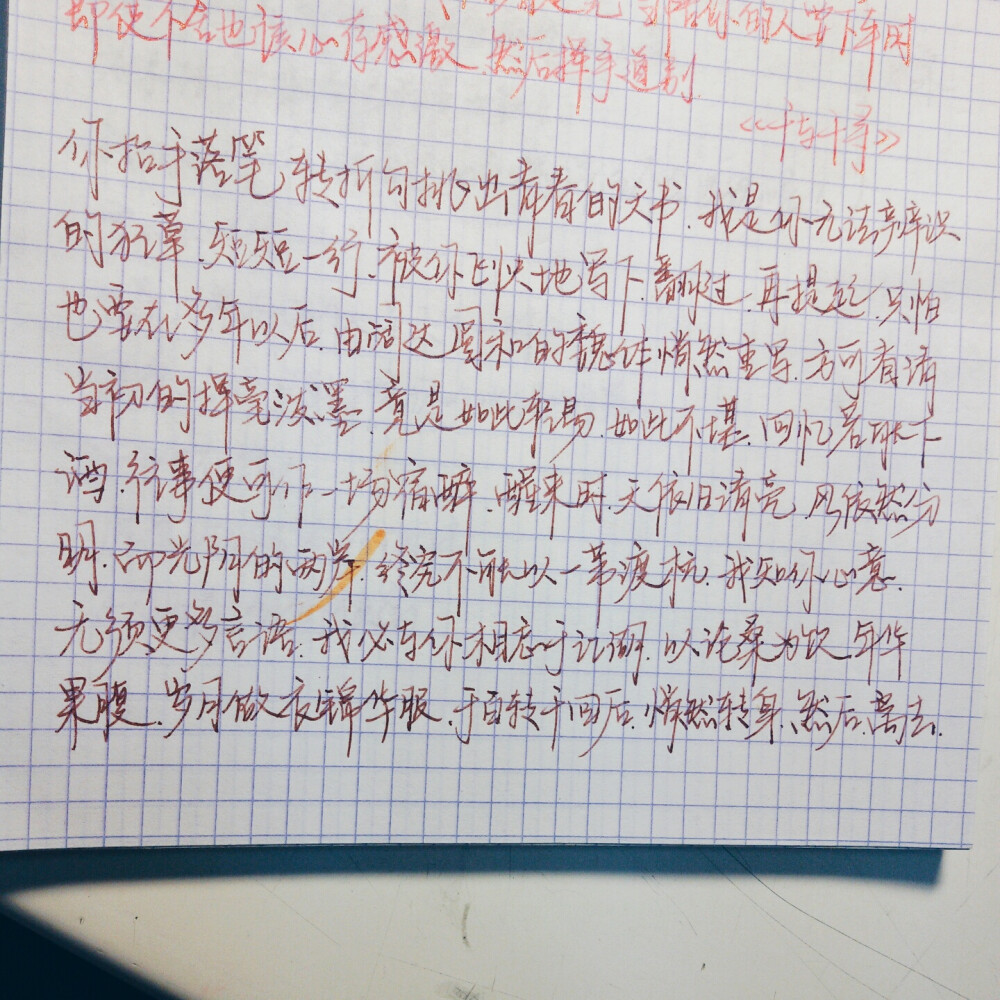 当陪你的人要下车时
即使不舍也该心存感激,然后挥手道别.
《千与千寻》
你抬手落笔,转折勾挑出青春的文书.我是你无法辨识
的狂草.短短一行.被你飞快地写下.翻过.再提起.只怕
也要在多年以后.由阔达圆和的魏体悄然重写.方可看清
当初的挥毫泼墨.竟是如此轻易.如此不堪.回忆若耿下
酒.往事便可作一场宿醉.醒来时.天依旧清亮.风依然分
明.而光阴的两岸.终究不能以一苇渡杭.我知你心意.
无须更多言语.我必与你相忘于江湖.以沧桑为饮.年华
果腹.岁月做衣锦华服.于百转千回后.悄然转身.然后.离去.